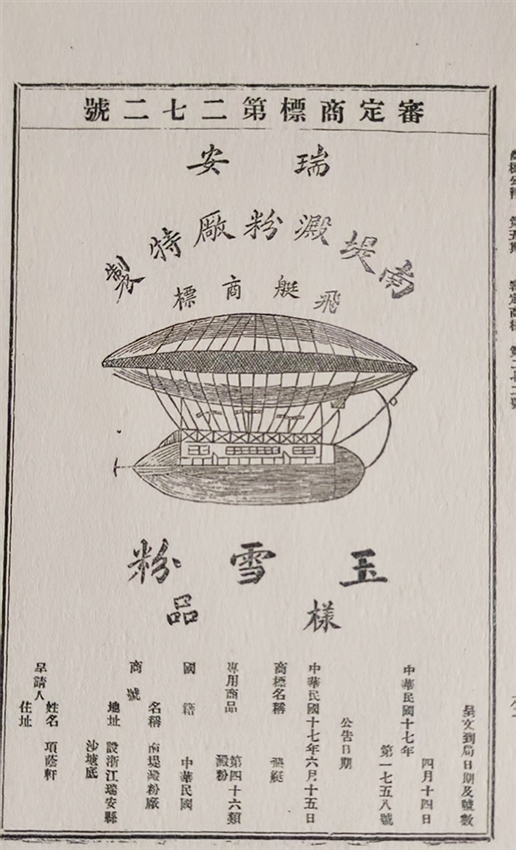 審定商標第二七二號
瑞安
南堤澱粉廠特製
飛艇商標
玉雪粉
樣品
呈文到局日期及號數
中華民國十七年四月十四日
第一七五八號
公告日期
中華民國十七年六月十五日
商標名稱 飛艇
專用商品 第四十六類
澱粉
國籍 中華民國
商號
名稱 南堤澱粉廠
地址 設浙江瑞安縣
沙堤底
呈請人
姓名 項蔭軒
住址